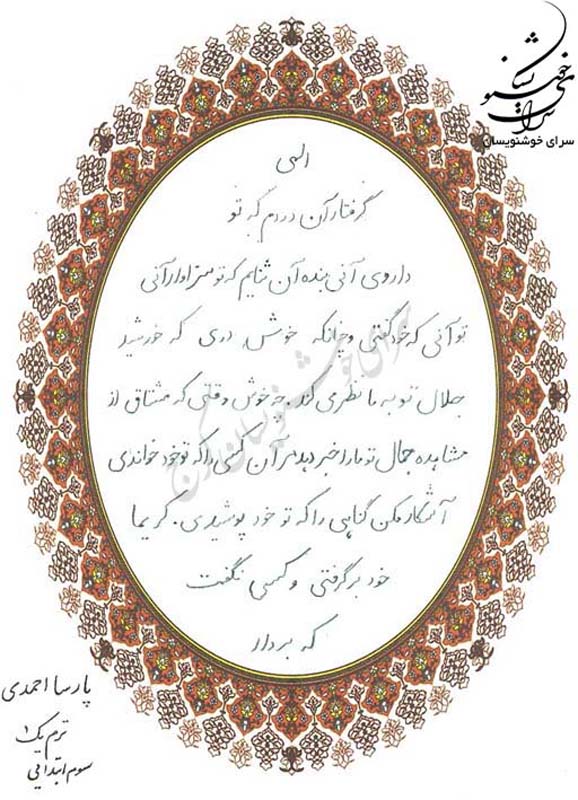 سرای خوشنویسان
الهی
گرفتار آن دردم که تو
داروی آنی بنده آن ثنایم که تو سزاوار آنی
تو آنی که خود گفتی و چنانکه خوش دری که خورشید
جلال تو به ما نظری کند. چه خوش وقتی که مشتاق از
مشاهده جمال تو ما را خبر دهد مر آن کسی را که تو خود خواندی
آشکار مکن گناهی را که تو خود پوشیدی. کریما
خود برگرفتی و کسی نگفت
که بردار
پارسا احمدی
ترم یک ۱
سوم ابتدایی